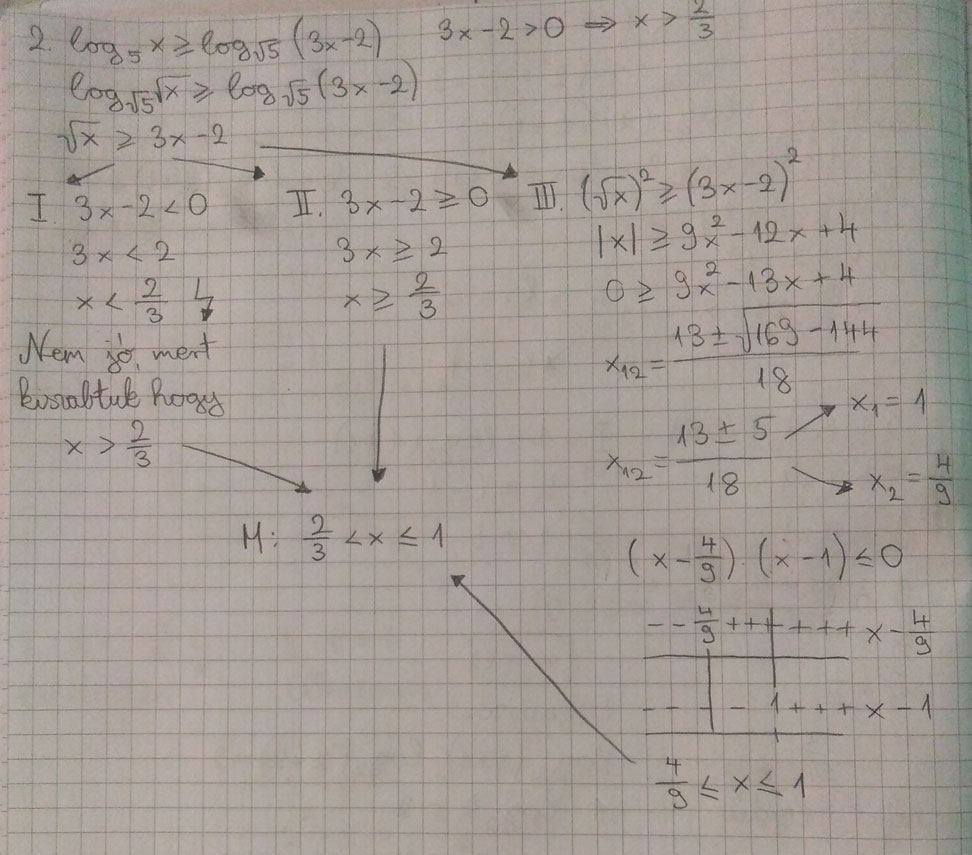 2. log₅ x ≥ log_√5 (3x-2) 3x-2>0 ⇒ x > 2/3
log_√5 √x ≥ log_√5 (3x-2)
√x ≥ 3x-2
I. 3x-2<0
3x < 2
x < 2/3 ↯
Nem jó, mert
kisrabtuk hogy
x > 2/3
II. 3x-2 ≥ 0
3x ≥ 2
x ≥ 2/3
III. (√x)² ≥ (3x-2)²
|x| ≥ 9x² -12x +4
0 ≥ 9x² -13x +4
x₁₂ = (13 ± √(169-144))/18
x₁₂ = (13 ± 5)/18
x₁ = 1
x₂ = 4/9
M: 2/3 < x ≤ 1
(x - 4/9) · (x - 1) ≤ 0
- - 4/9 + + + + + + x - 4/9
- - - - 1 + + + x - 1
4/9 ≤ x ≤ 1